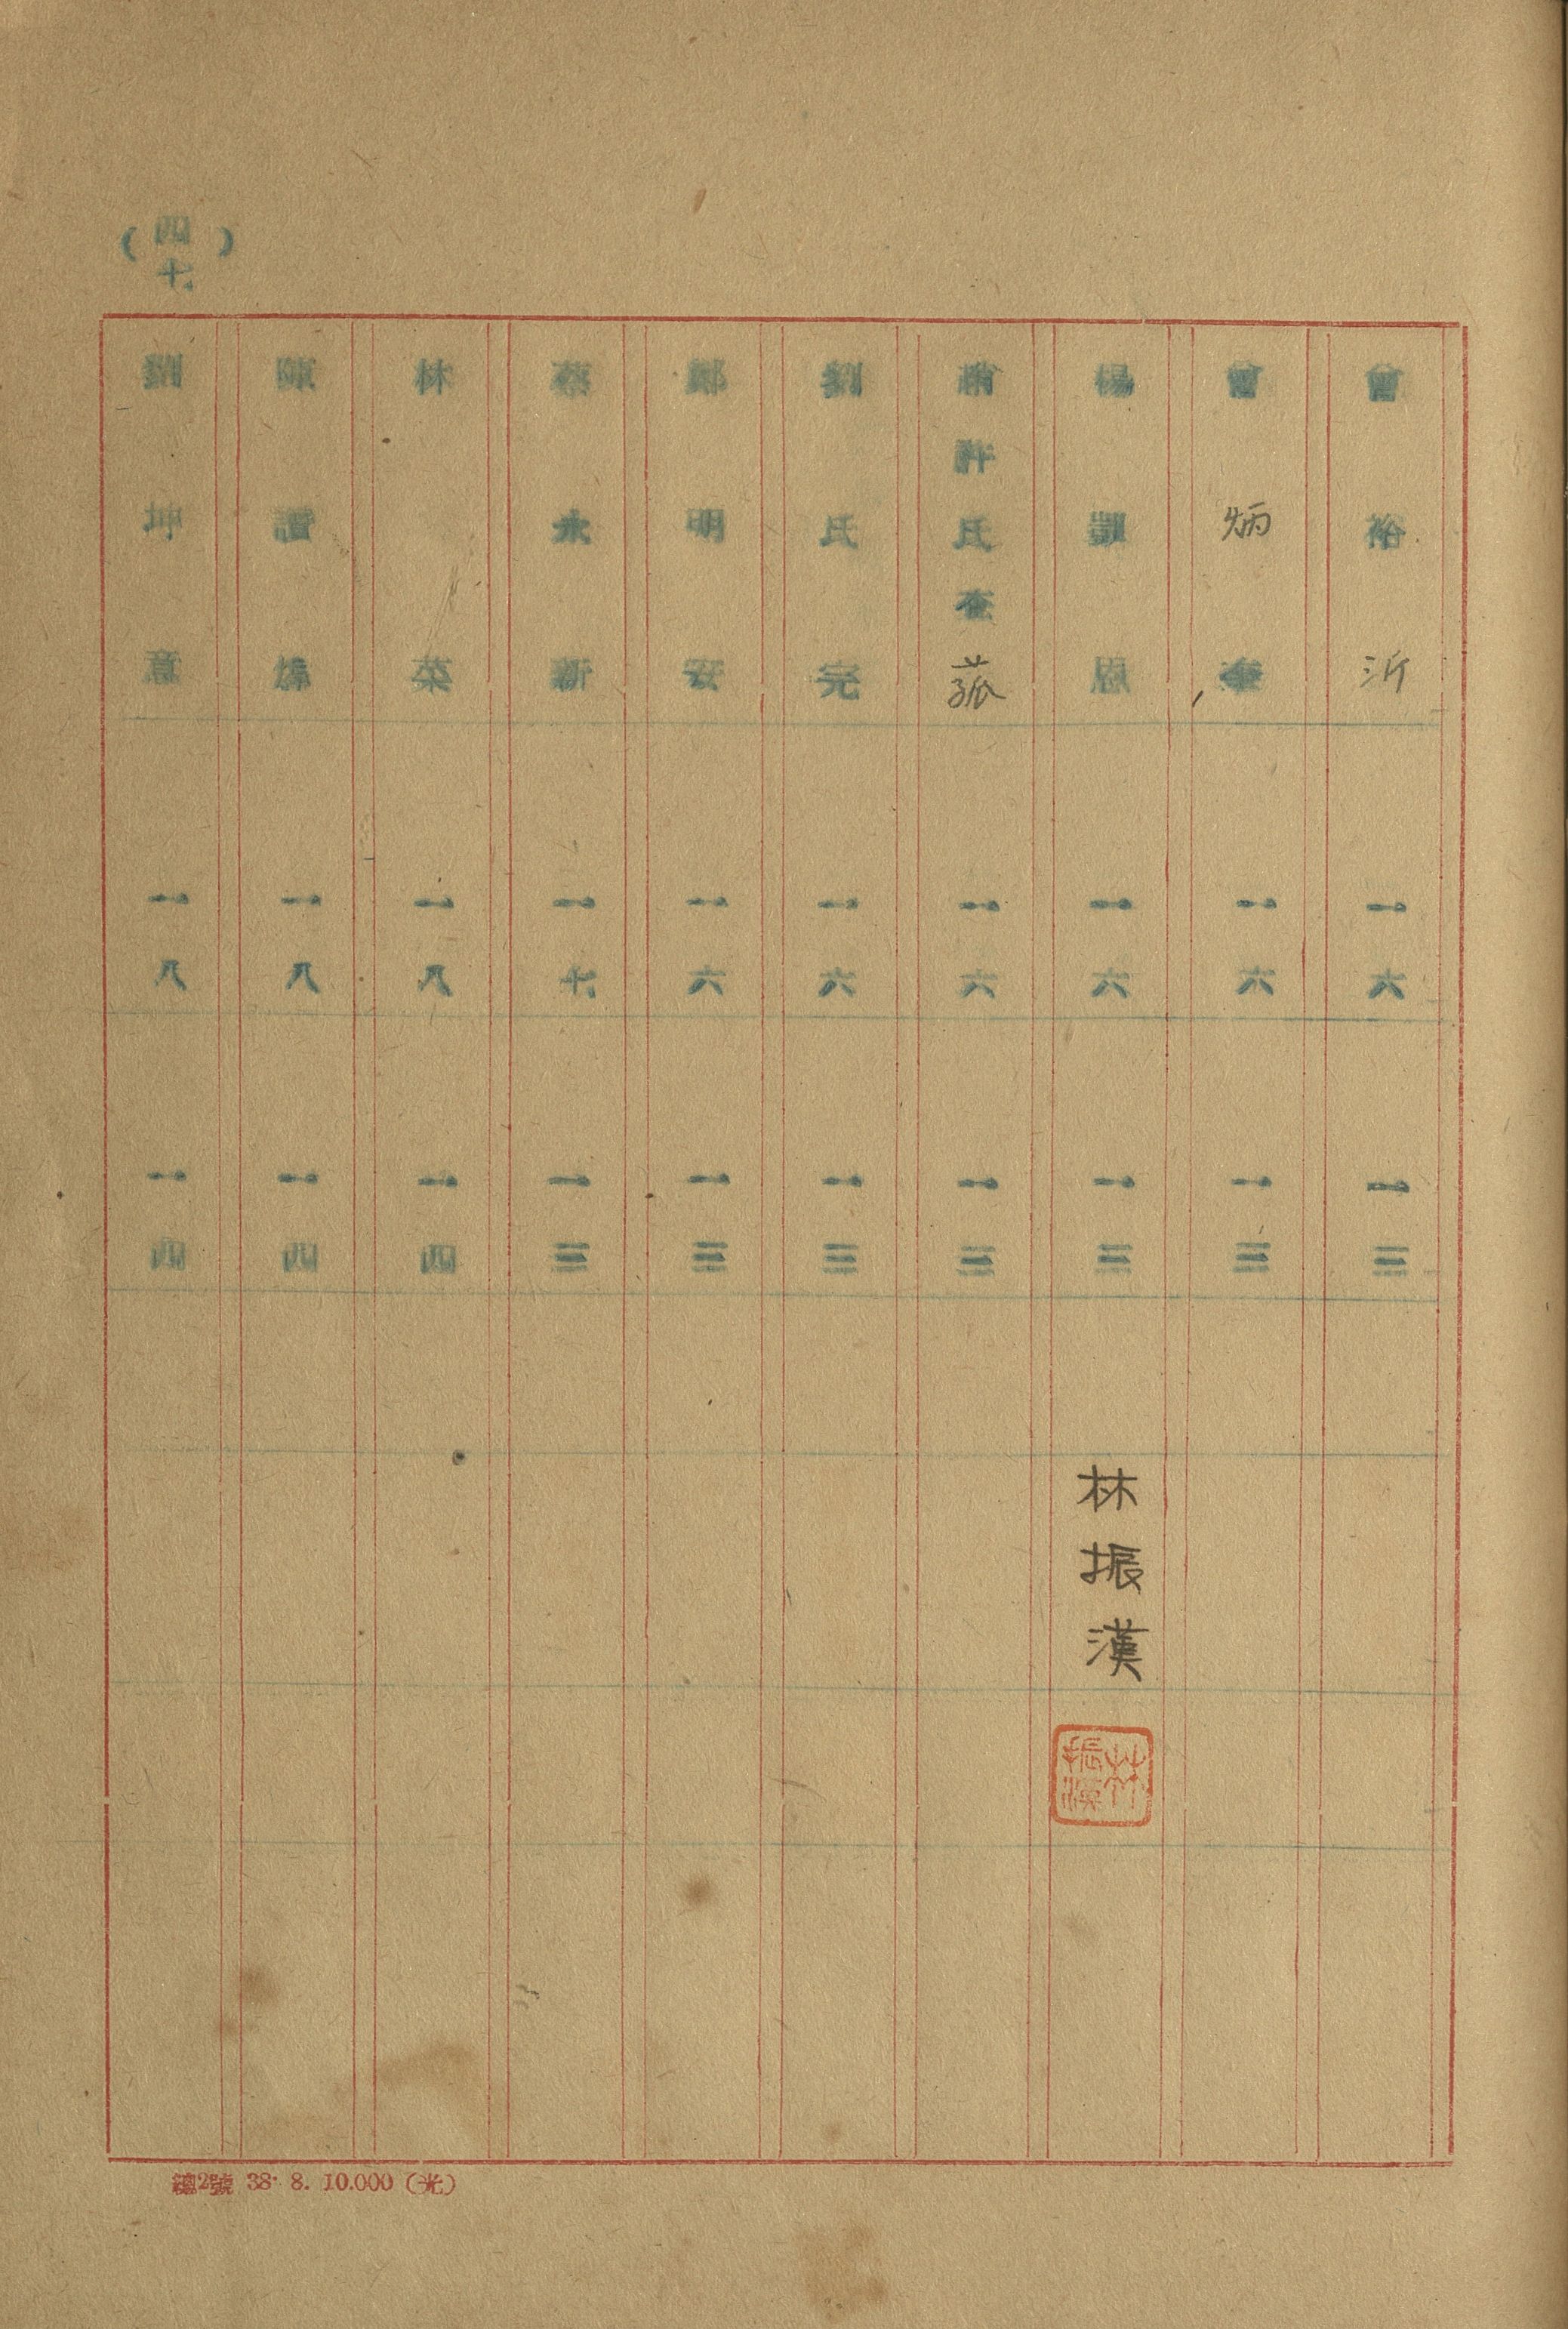 曾裕沂 一六 一三
曾炳 一六 一三
楊凱恩 一六 一三 林振漢 林振漢
蕭許氏 菰 一六 一三
劉氏完 一六 一三
鄭明安 一六 一三
蔡永新 一七 一三
林菜 一八 一四
陳讚 一八 一四
劉坤意 一八 一四
(四七)
總2號 38. 8. 10.000 (光)